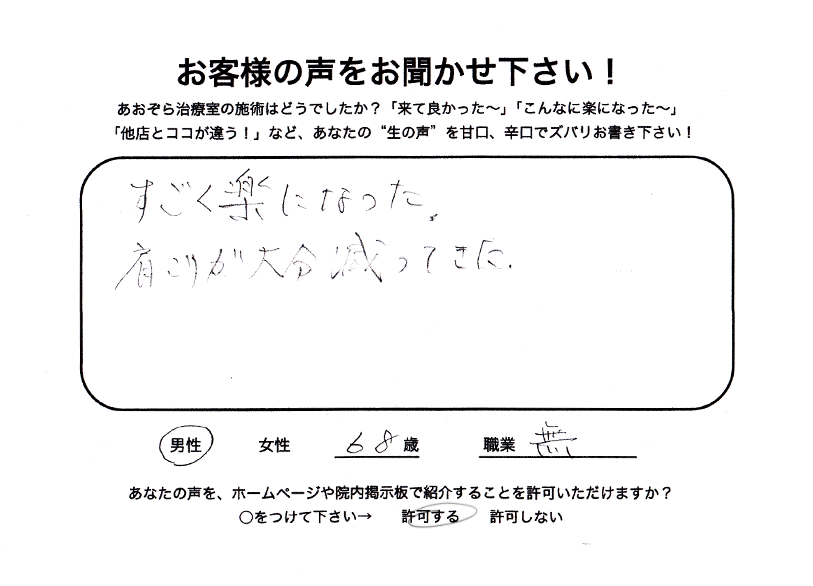 お客様の声をお聞かせ下さい！
あおぞら治療室の施術はどうでしたか？「来て良かった〜」「こんなに楽になった〜」
「他店とココが違う！」など、あなたの“生の声”を甘口、辛口でズバリお書き下さい！
すごく楽になった。
肩こりが大分減ってきた.
男性 女性 68歳 職業 無
あなたの声を、ホームページや院内掲示板で紹介することを許可いただけますか？
○をつけて下さい→ 許可する 許可しない